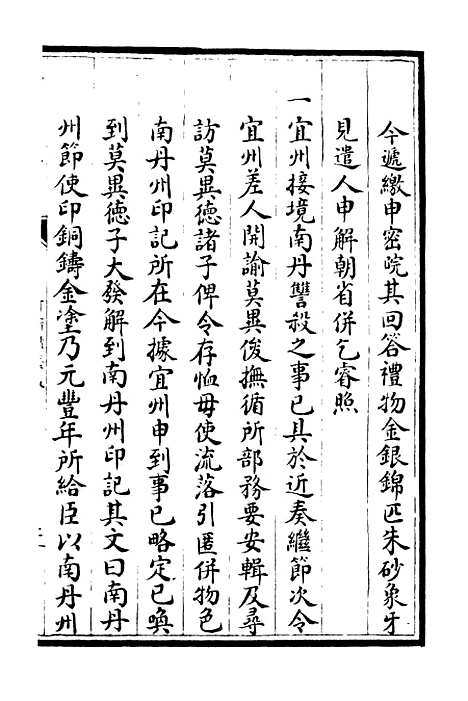 今遞繳申密院其回答禮物金銀錦匹朱砂象牙
見遣人申解朝省併乞睿照
一宜州接境南丹讐殺之事已具於近奏繼節次令
宜州差人開諭莫異俊撫循所部務要安輯及尋
訪莫異徳諸子俾令存恤毋使流落引匿併物色
南丹州印記所在今據宜州申到事已略定已喚
到莫異徳子大發解到南丹州印記其文曰南丹
州節使印銅鑄金塗乃元豐年所給臣以南丹州